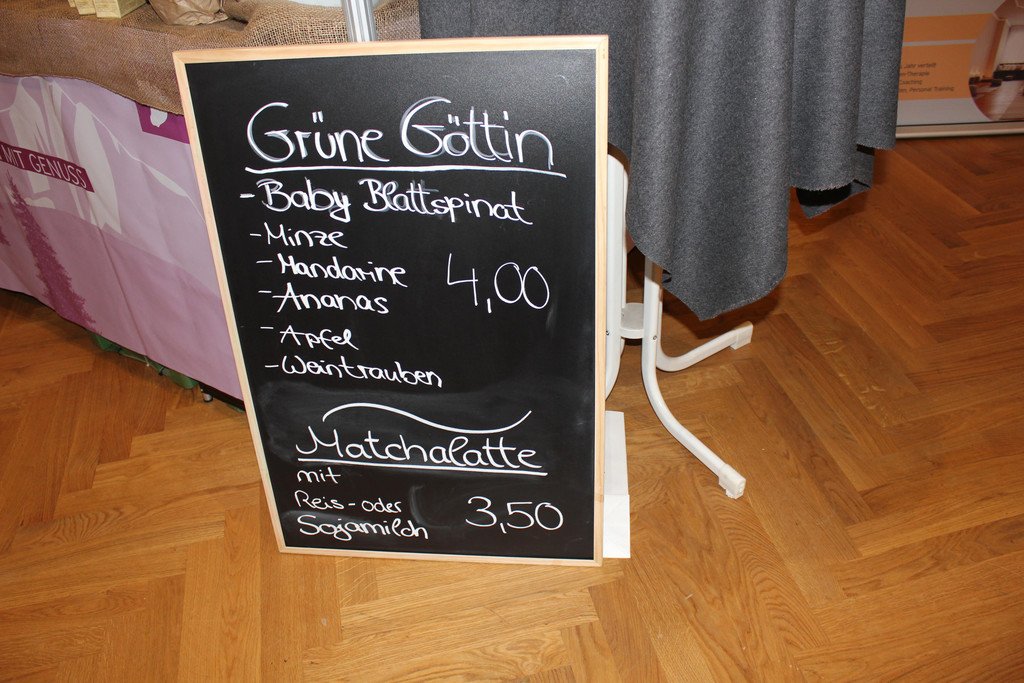 Grüne Göttin
- Baby Blattspinat
- Minze
- Mandarine
4,00
- Ananas
- Apfel
- Weintrauben
Matchalatte
mit
Reis- oder
3,50
Sojamilch
MIT GENUSS
Jahr verteilt
Therapie
Coaching
Personal Training